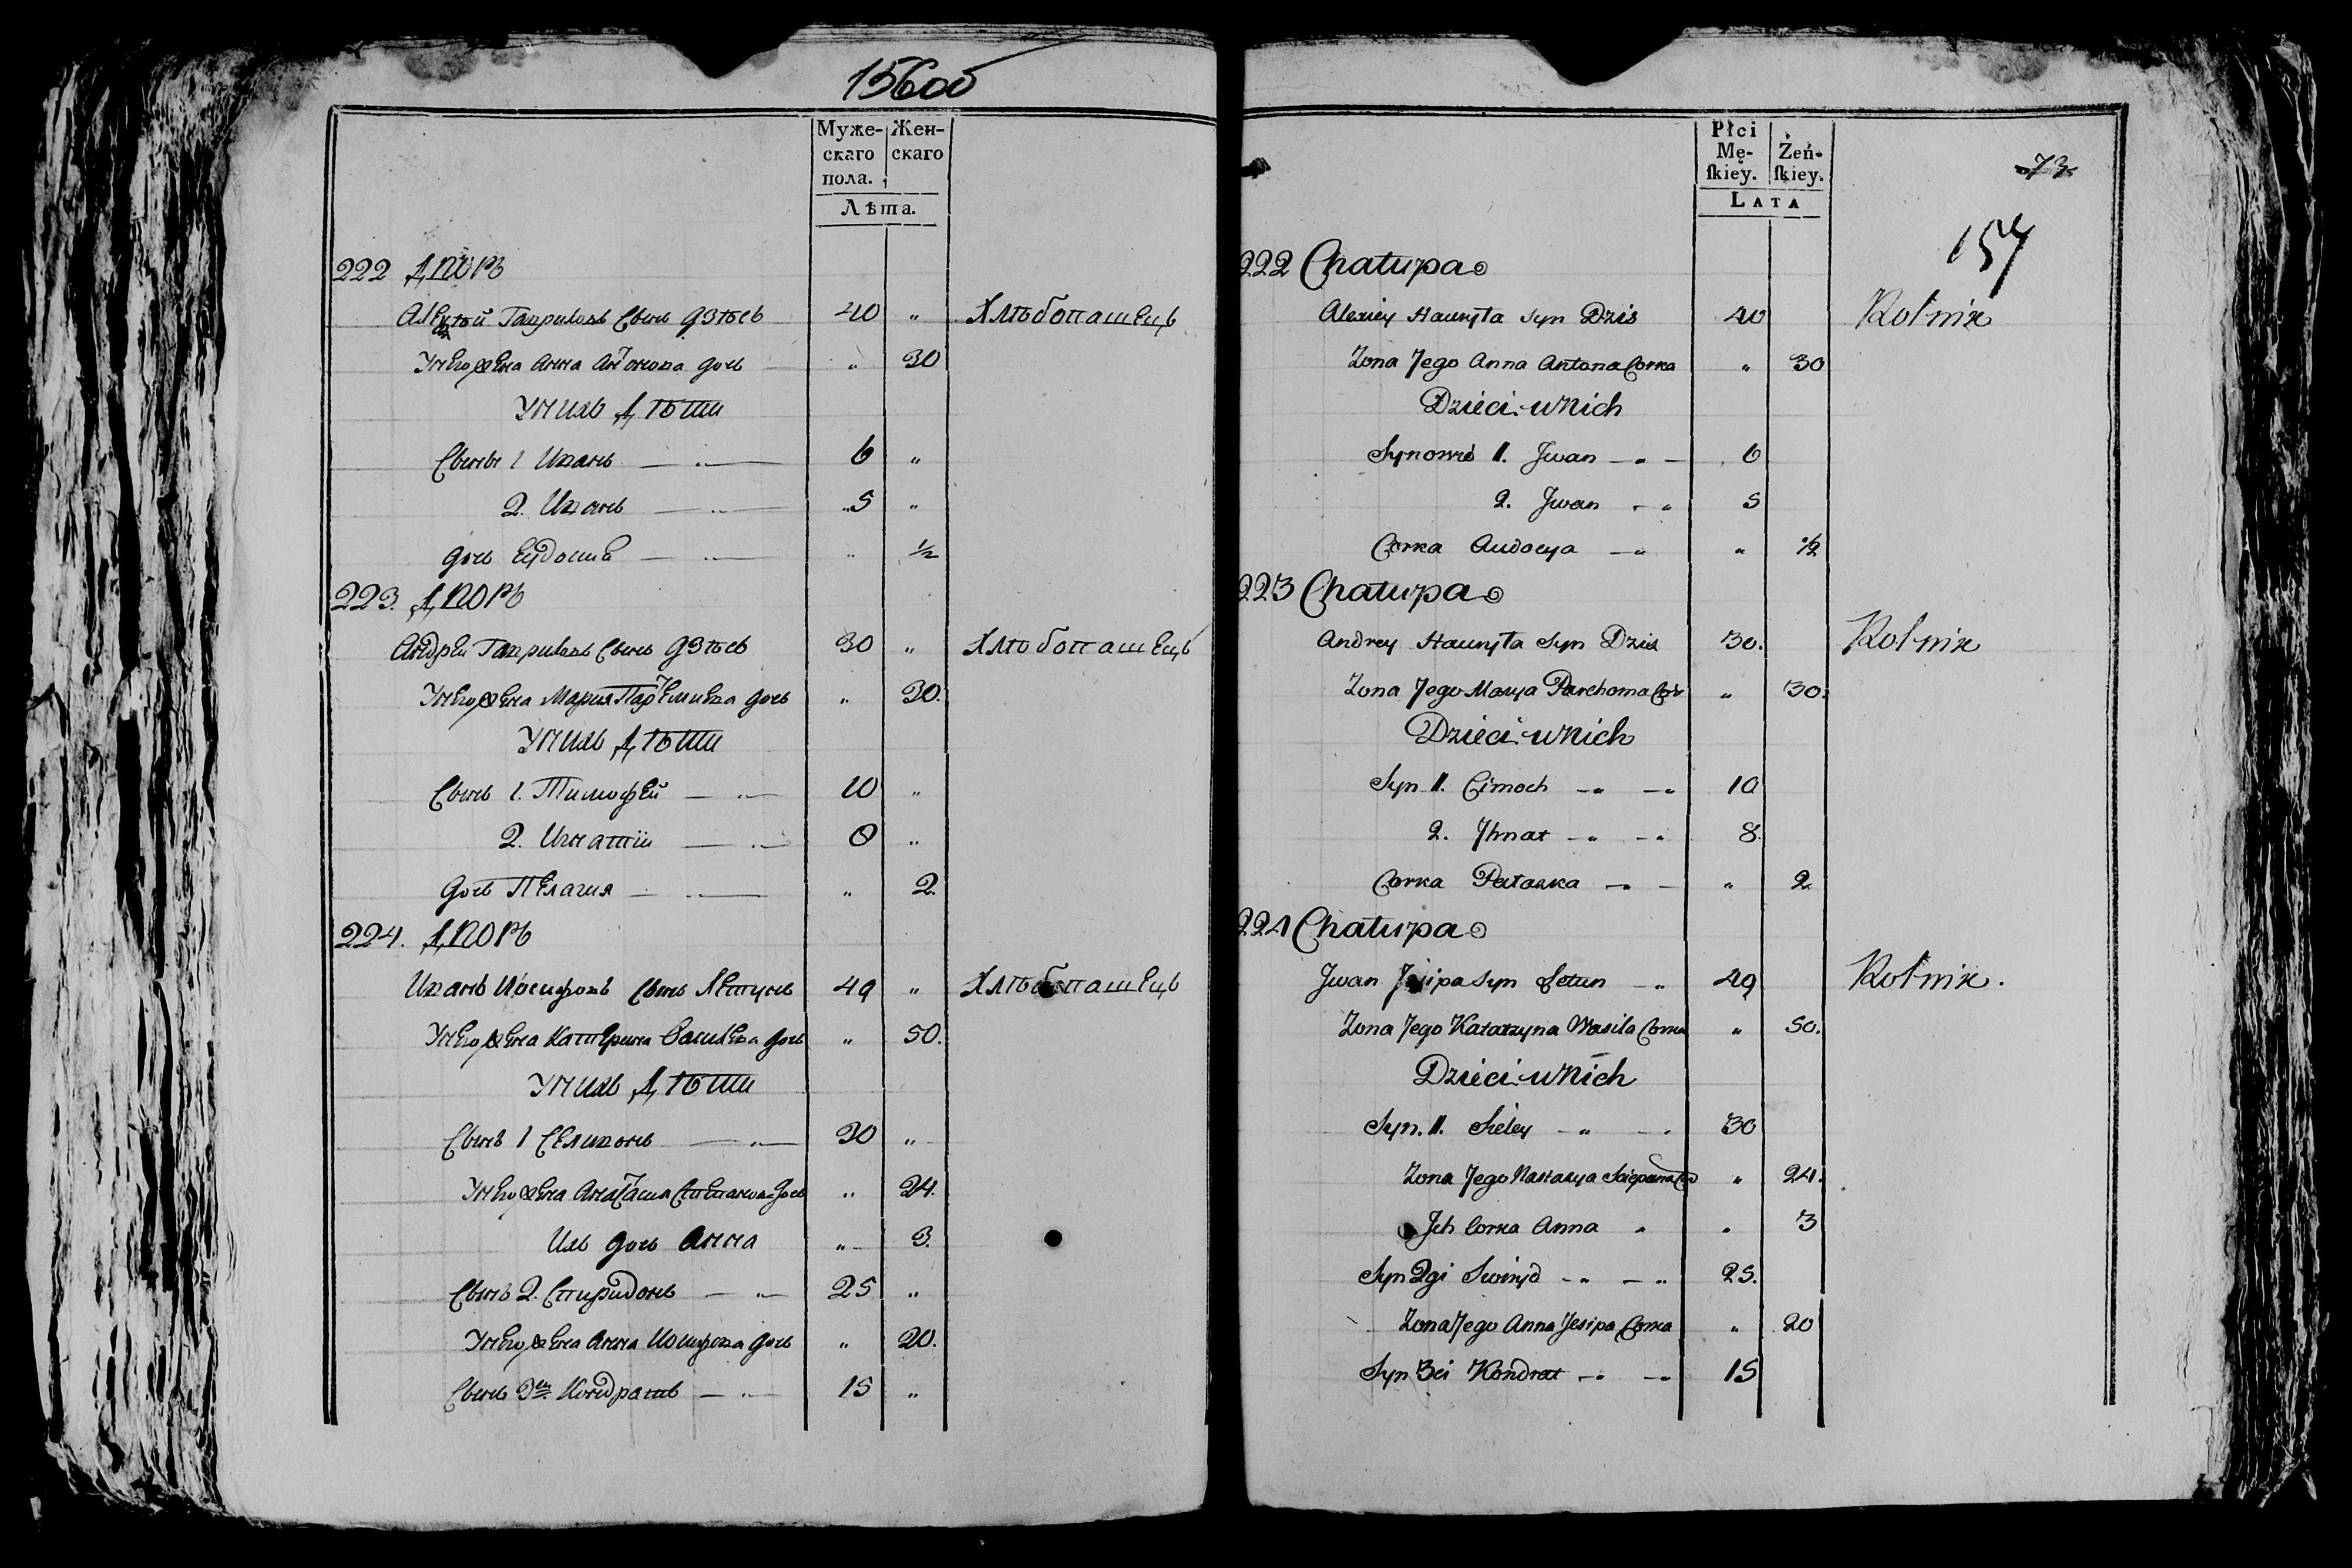 156об
Муже- Жен-
скаго скаго
пола.
Лѣта.
222 Дворъ
Алексѣй Гавриловъ сынъ Дзѣсь 40 „ Хлѣбопашецъ
У него жена Анна Антонова дочь „ 30
У нихъ дѣти
Сыны 1 Иванъ 6 „
2. Иванъ 5 „
дочь Евдокия „ ½
223. Дворъ
Андрей Гавриловъ сынъ Дзѣсь 30 „ Хлѣбопашецъ
У него жена Мария дочь „ 30.
У нихъ дѣти
Сынъ 1. Тимофей 10 „
2. Игнатій 8 „
дочь Пелагия „ 2.
224. Дворъ
Иванъ Иосифовъ сынъ Летунъ 49 „ Хлѣбопашецъ
У него жена Катерина Василева дочь „ 50.
У нихъ дѣти
Сынъ 1 Селивонъ 30 „
У него жена Анастасия Степанова дочь „ 24.
Ихъ дочь Анна „ 3.
Сынъ 2. Спиридонъ 25 „
У него жена Анна Иосифова дочь „ 20.
Сынъ 3й Кондратъ 15 „
Płci
Mę- Żeń-
ſkiey. ſkiey.
LATA
73
157
222 Chałupa
Alexiey Hauryła syn Dzis 40 Rolnik
Zona Jego Anna Antona Corka „ 30
Dzieci u Nich
Synowie 1. Jwan 6
2. Jwan 5
Corka Audocya „ ½
223 Chałupa
Andrey Hauryła Syn Dzis 30. Rolnik
Zona Jego Marya Parchoma Cor „ 30.
Dzieci u Nich
Syn 1. Cimoch 10
2. Jhnat 8.
Corka Pałaska „ 2
224 Chałupa
Jwan Jesipa Syn Letun 49 Rolnik.
Zona Jego Katarzyna Wasila Corka „ 50.
Dzieci u Nich
Syn. 1. Sieley 30
Zona Jego Nastasya Sciepana Cor „ 24.
Jch Corka Anna „ 3
Syn 2gi Swiryd 25.
Zona Jego Anna Jesipa Corka „ 20
Syn 3ci Kondrat 15